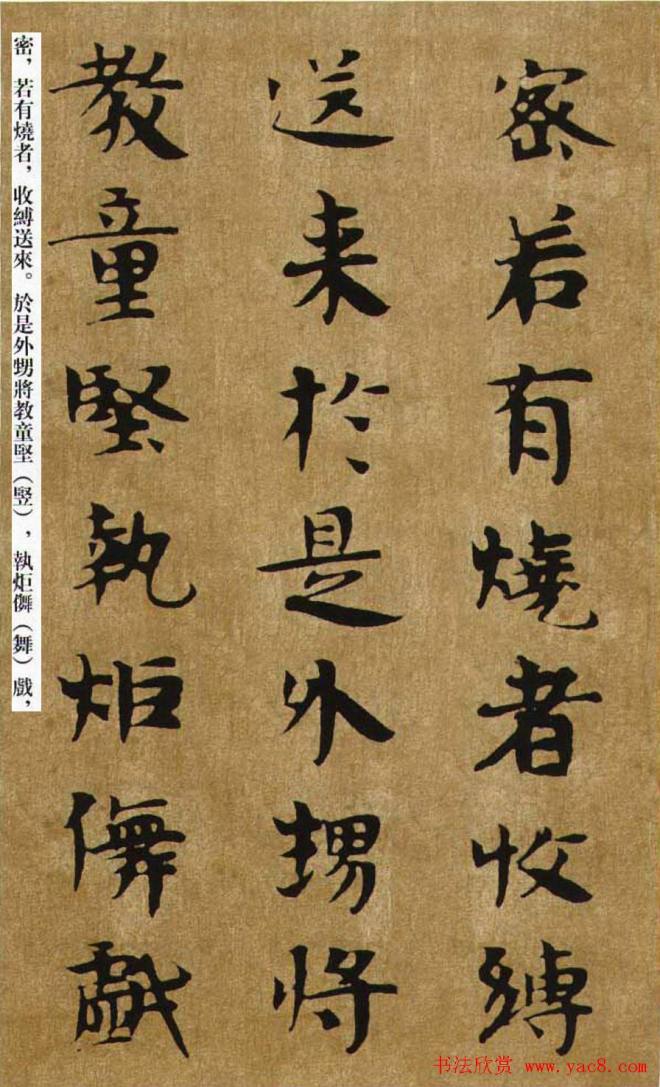 密若有燒者收縛
送来於是外甥将
教童堅執炬儛戯
密，若有燒者，收縛送來。於是外甥將教童堅（竪），執炬儛（舞）戲，
书法欣赏 www.yac8.com